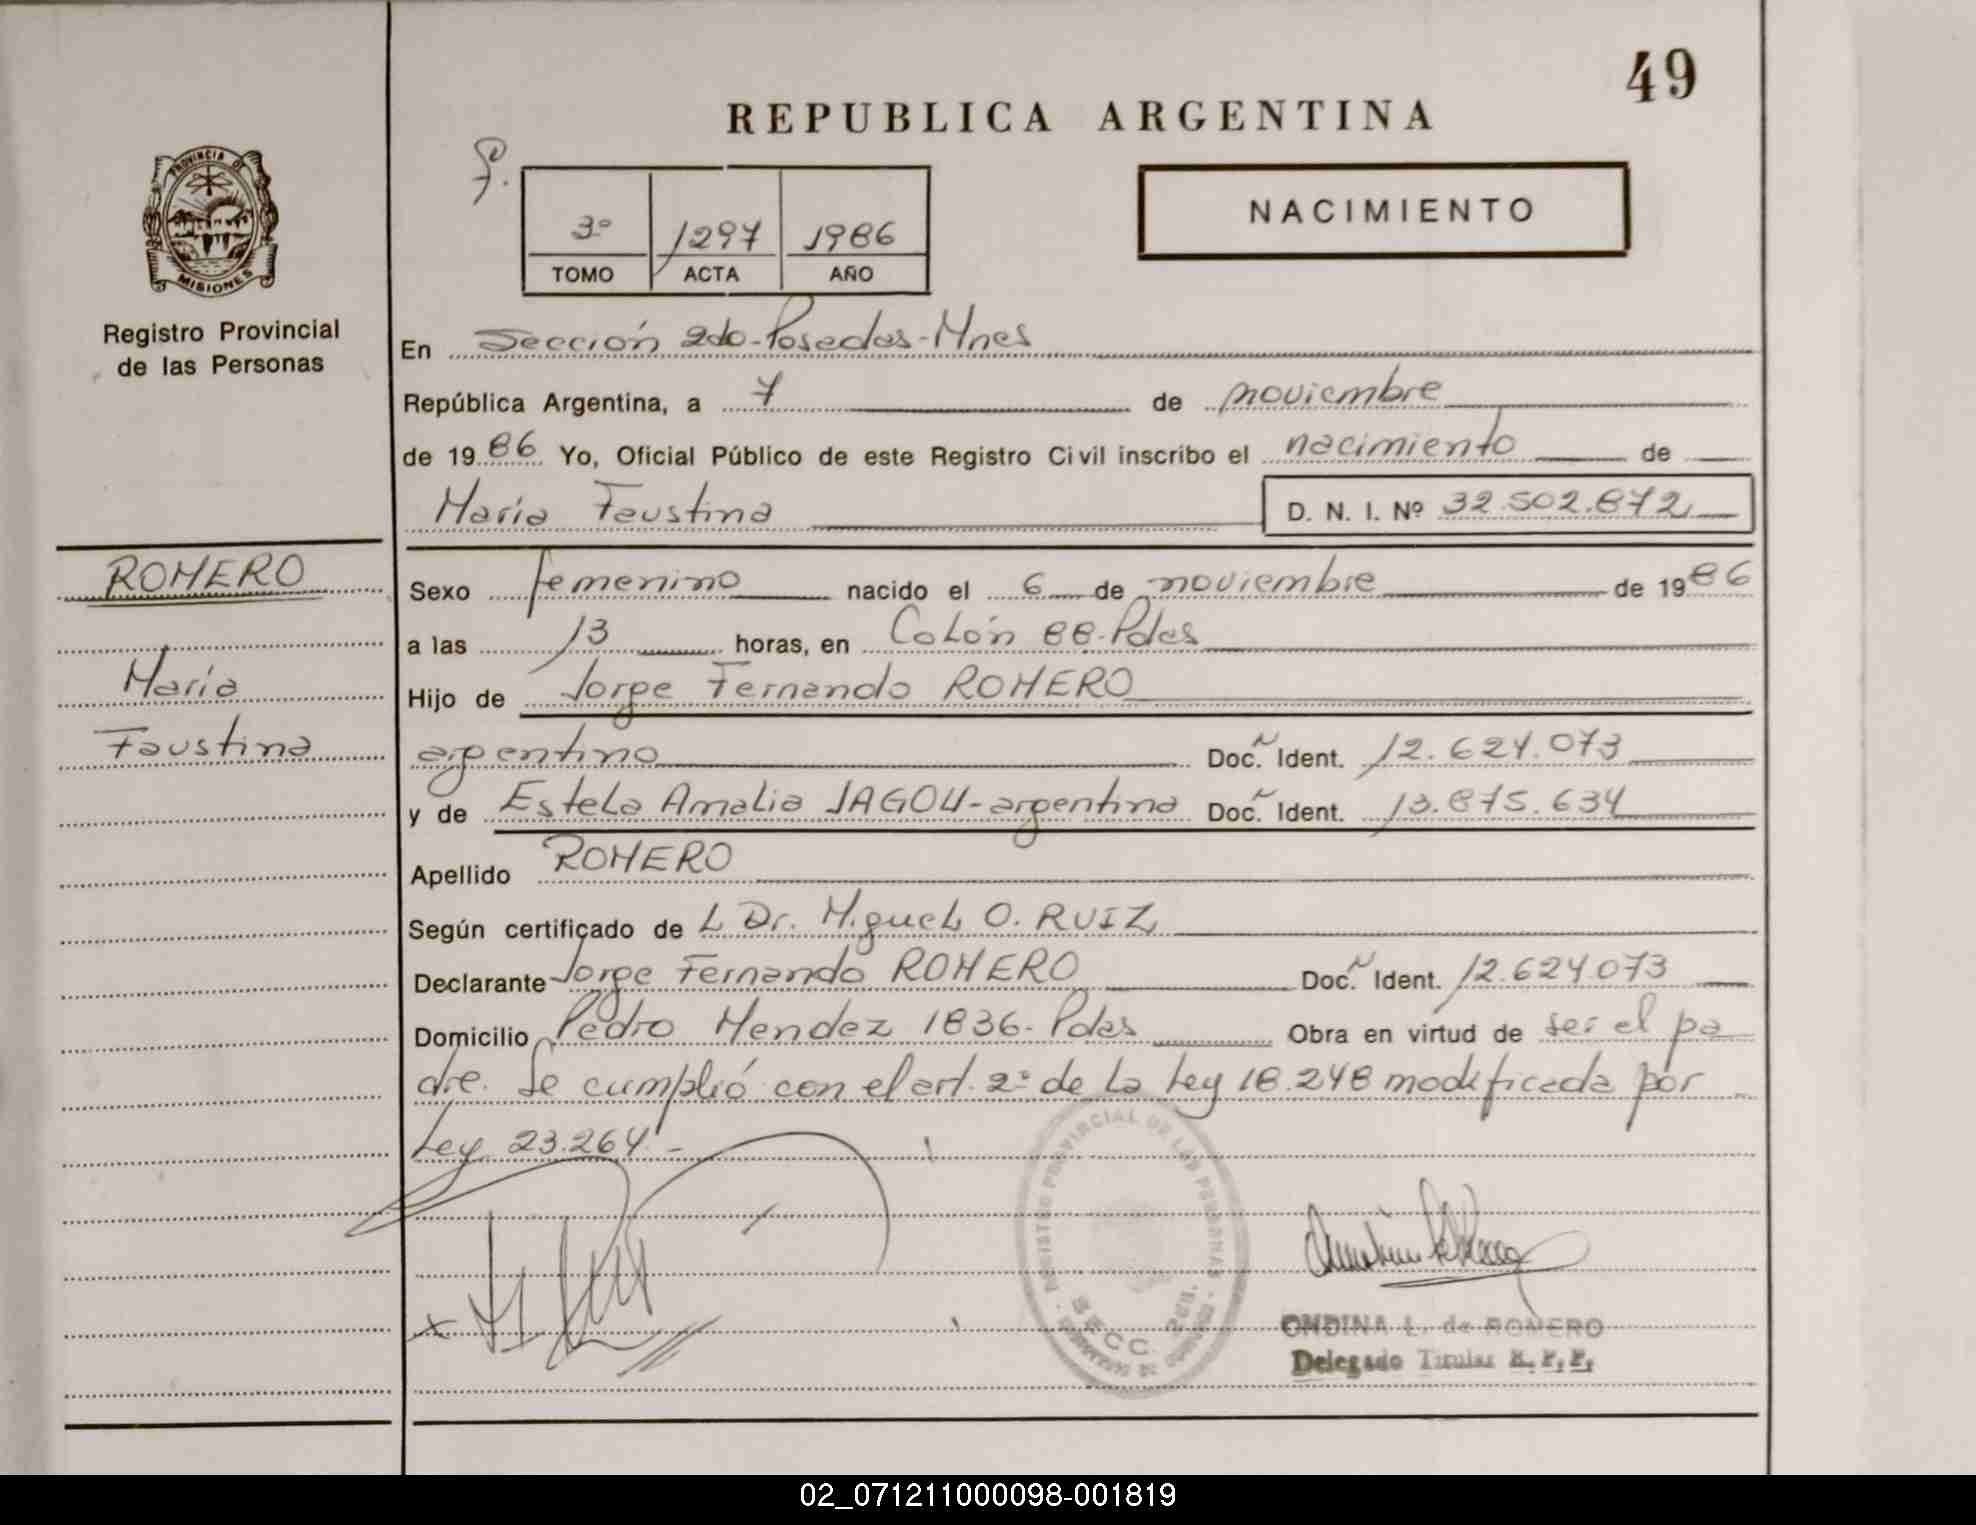 49
REPUBLICA ARGENTINA
PROVINCIA DE
MISIONES
Registro Provincial
de las Personas
3º 1297 1986
TOMO ACTA AÑO
NACIMIENTO
En Sección 2da-Posadas-Mnes
República Argentina, a 7 de noviembre
de 1986 Yo, Oficial Público de este Registro Civil inscribo el nacimiento de
María Faustina D. N. I. Nº 32.502.872
ROMERO
María
Faustina
Sexo femenino nacido el 6 de noviembre de 1986
a las 13 horas, en Colón 88-Pdas
Hijo de Jorge Fernando ROMERO
argentino Doc. Ident. 12.624.073
y de Estela Amalia JAGOU-argentina Doc. Ident. 13.875.634
Apellido ROMERO
Según certificado de L Dr. Miguel O. RUIZ
Declarante Jorge Fernando ROMERO Doc. Ident. 12.624.073
Domicilio Pedro Mendez 1836-Pdas Obra en virtud de ser el pa
dre. Se cumplió con el art. 2º de la Ley 18.248 modificada por
Ley 23.264.-
REGISTRO PROVINCIAL DE LAS PERSONAS
SECC. 2da
ONDINA L. de ROMERO
Delegado Titular R. P. P.
02_071211000098-001819